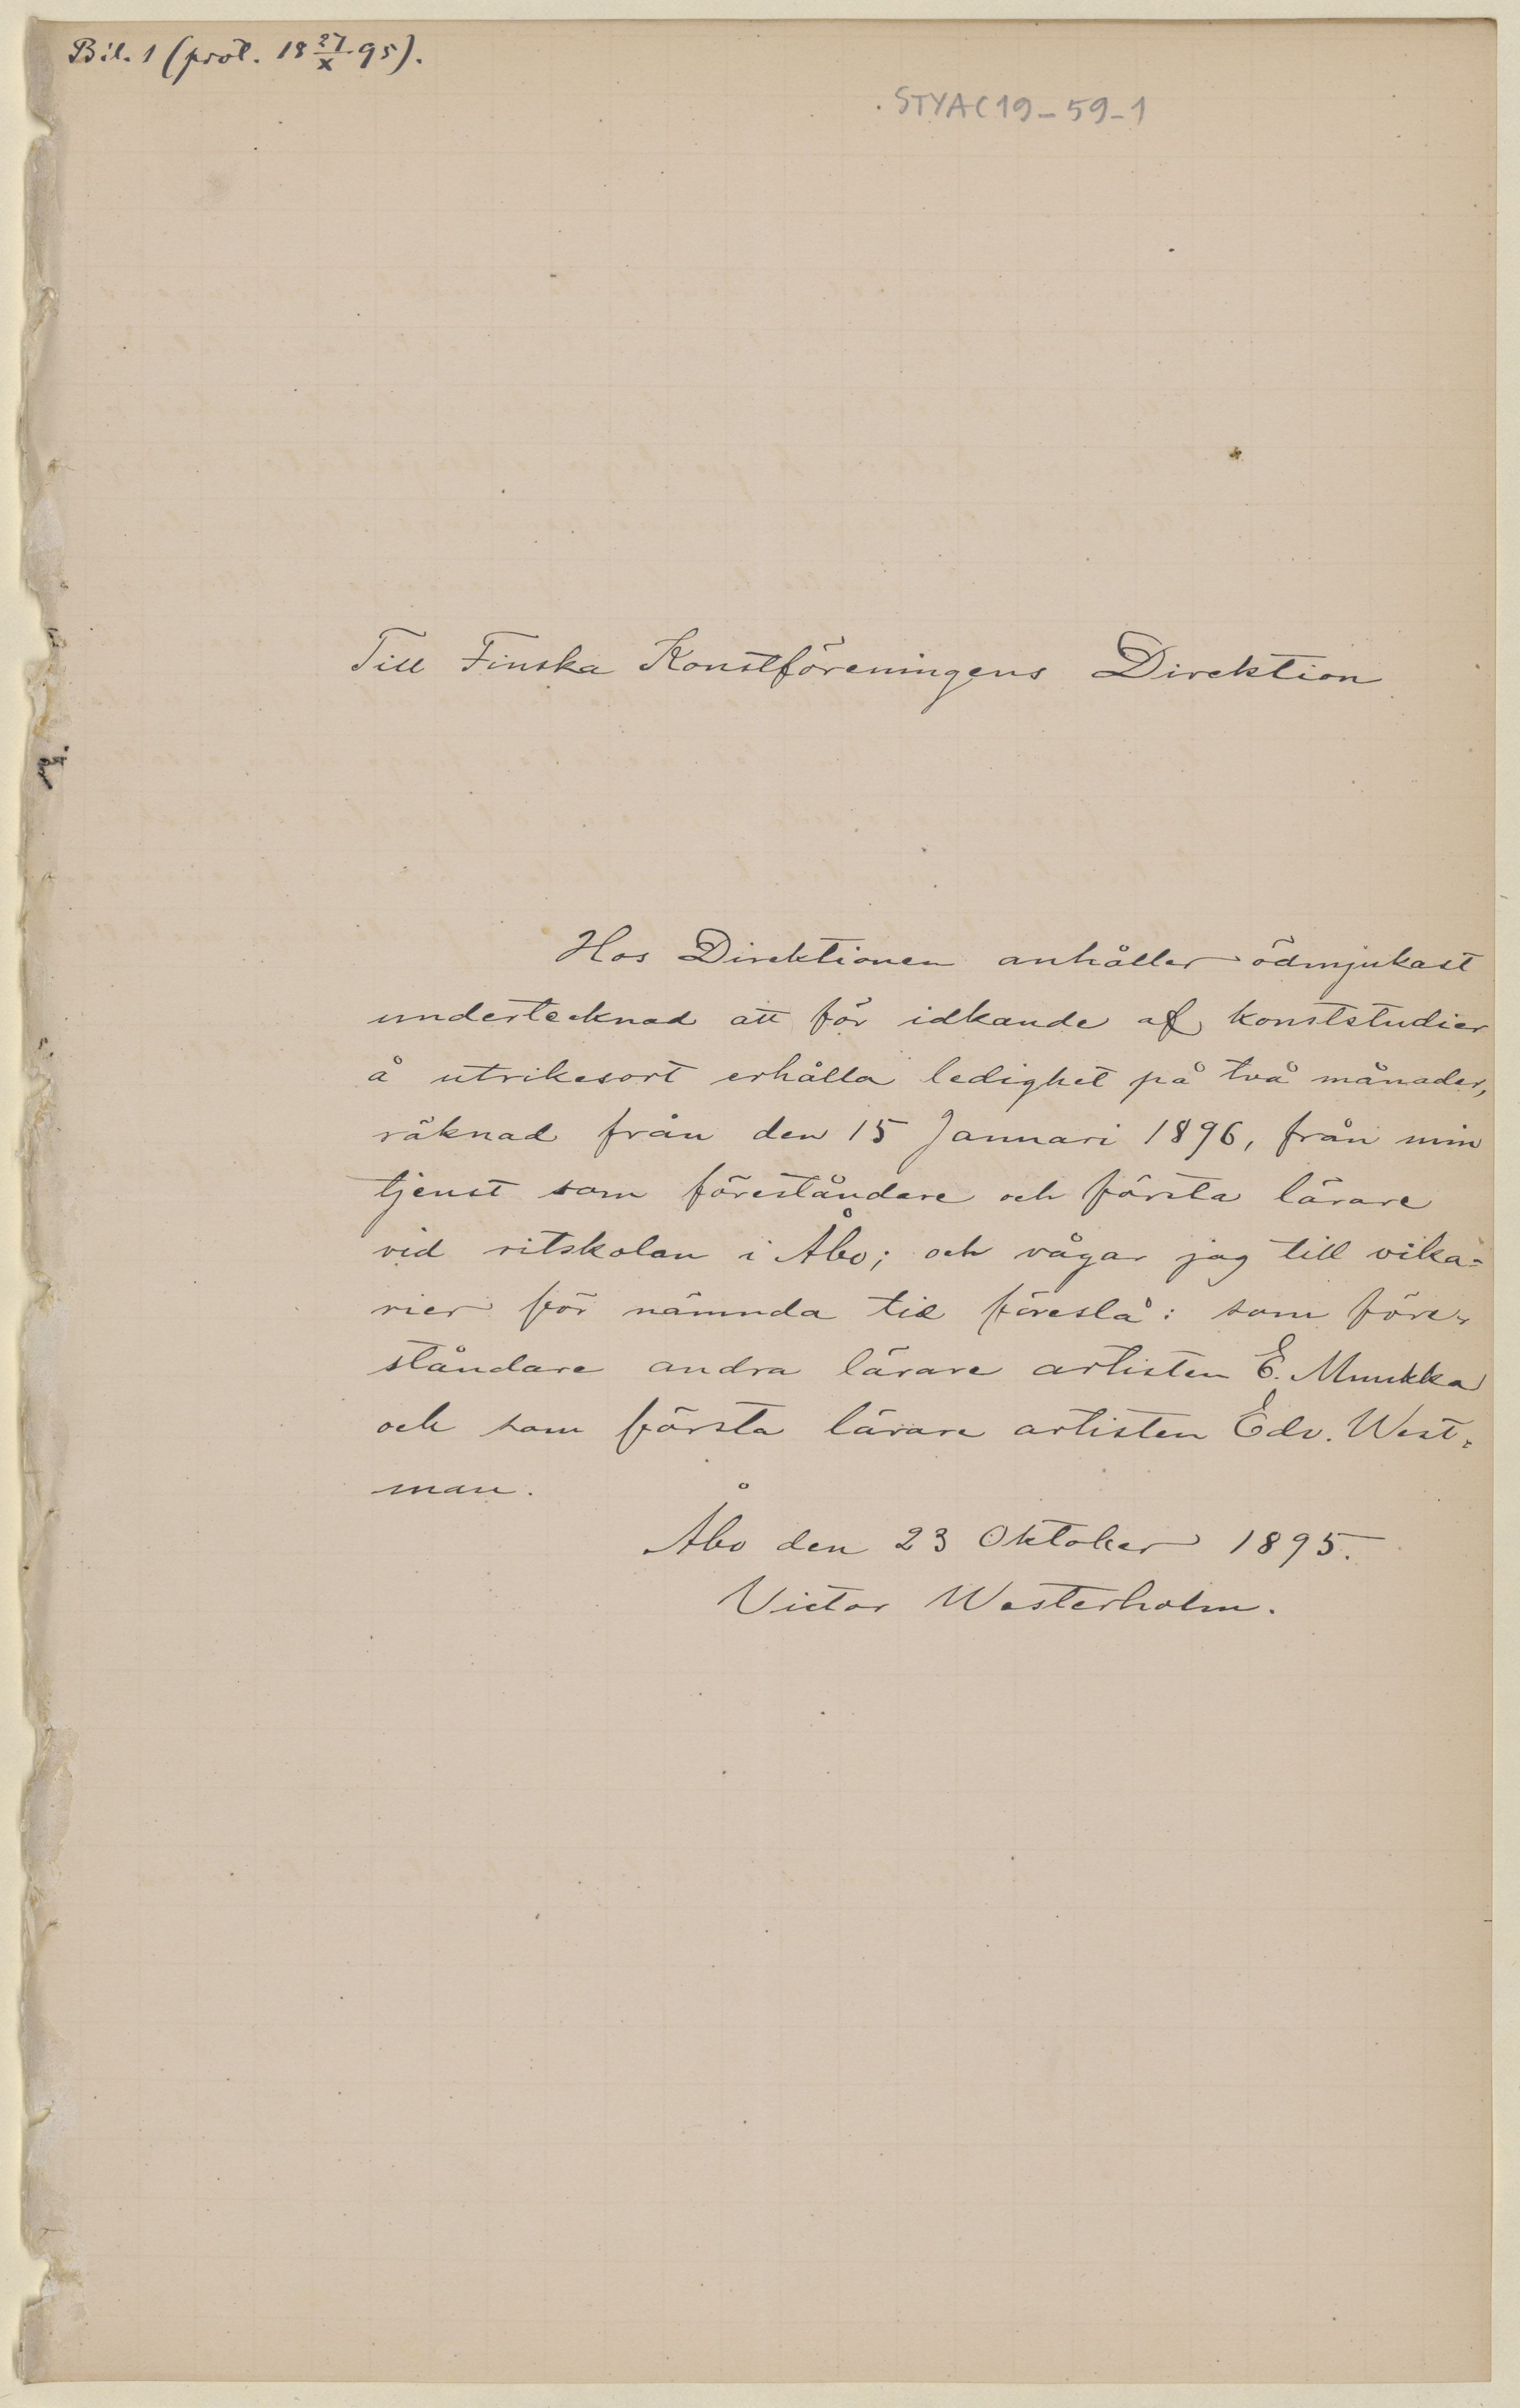 Bil. 1 (prot. 18 27/X 95).
STYA C19-59-1
Till Finska Konstföreningens Direktion
Hos Direktionen anhåller ödmjukast
undertecknad att för idkande af konststudier
å utrikesort erhålla ledighet på två månader,
räknad från den 15 Januari 1896, från min
tjenst som föreståndare och första lärare
vid ritskolan i Åbo; och vågar jag till vika-
rier för nämnda tid föreslå: som före-
ståndare andra lärare artisten E. Muukka
och som första lärare artisten Edv. West-
man.
Åbo den 23 Oktober 1895.
Victor Westerholm.